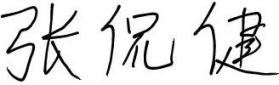 张侃健